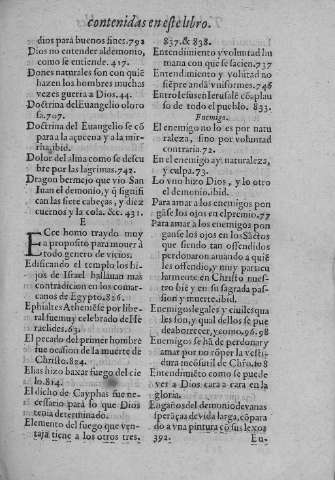 contenidas en este libro.
dios para buenos fines. 792
Dios no entender al demonio,
como se entiende. 417.
Dones naturales son con quiē
hazen los hombres muchas
vezes guerra a Dios. 44.
Doctrina del Euangelio oloro
sa. 707.
Doctrina del Euangelio se cō
para a la açucena y a la mir-
rha, ibid.
Dolor del alma como se descu
bre por las lagrimas. 742.
Dragon bermejo que vio San
Iuan el demonio, y q̄ signifi
can las siete cabeças, y diez
cuernos y la cola. &c. 431.
E
ECce homo traydo muy
a proposito para mouer a
todo genero de vicios.
Edificando el templo los hi-
jos de Israel hallauan mas
contradicion en los comar-
canos de Egypto. 826.
Ephialtes Atheniēse por libe-
ral fue muy celebrado de He
raclides. 63.
El pecado del primer hombre
fue ocasion de la muerte de
Christo. 824.
Elias hizo baxar fuego del cie
lo. 814.
El dicho de Cayphas fue ne-
cessario para lo que Dios
tenia determinado.
Elemento del fuego que ven-
taja tiene a los otros tres.
837. & 838.
Entendimiento y voluntad hu
mana con que se sacien. 737
Entendimiento y volūtad no
siēpre andā vniformes. 746
Entro Iesus en Ierusalē cō plau-
so de todo el pueblo. 833.
Enemigo.
El enemigo no lo es por natu
raleza, sino por voluntad
contraria. 72.
En el enemigo ay naturaleza,
y culpa. 73.
Lo vno hizo Dios, y lo otro
el demonio. ibid.
Para amar a los enemigos pon
gāse los ojos en el premio. 77
Para amar a los enemigos pon
ganse los ojos en los Sāctos
que siendo tan offendidos
perdonaron auando a quiē
les offendio, y muy particu
larmente en Christo nues-
tro biē y en su sagrada pas-
sion y muerte. ibid.
Enemigos legales y ciuiles qua
les son, y qual dellos se pue
de aborrecer, y como. 96. 98
Enemigos se hā de perdonar y
amar por no rōper la vesti-
dura incōsutil de Chrō. 108
Entendimiēto como se puede
ver a Dios cara a cara en la
gloria.
Engaños del demonio de vanas
sperāças de vida larga, cōpara
do a vna pintura cō sus lexos
392. En-